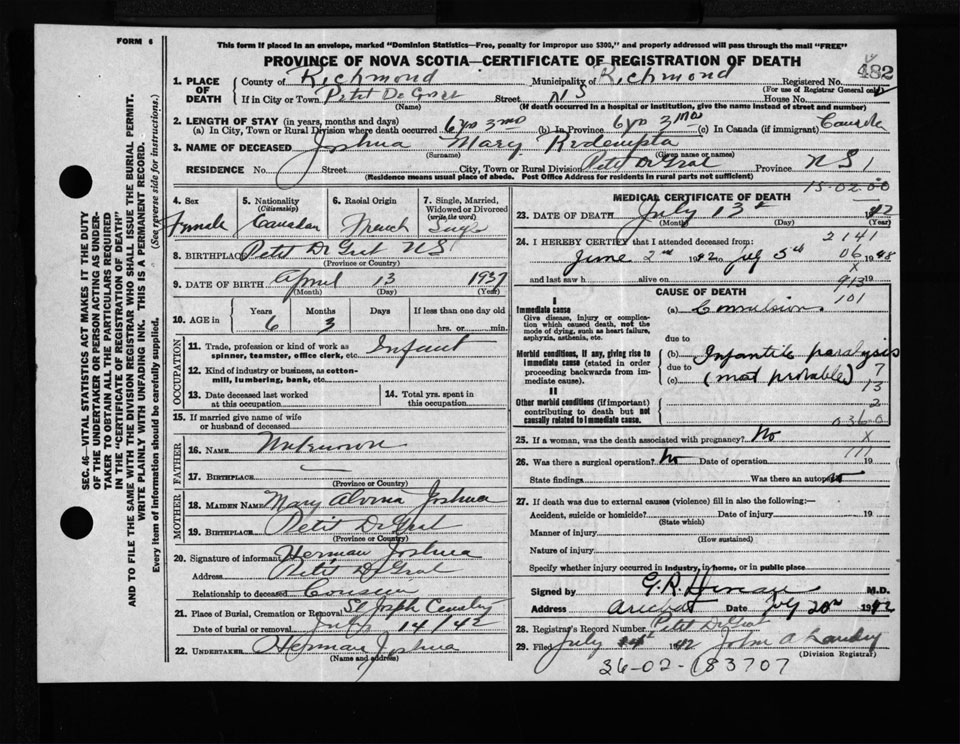 FORM 6
This form if placed in an envelope, marked "Dominion Statistics—Free, penalty for improper use $300," and properly addressed will pass through the mail "FREE"
PROVINCE OF NOVA SCOTIA—CERTIFICATE OF REGISTRATION OF DEATH
482
1. PLACE OF DEATH
County of Richmond Municipality of Richmond Registered No.
(For use of Registrar General only)
If in City or Town Petit De Grat Street NS House No.
(Name) (If death occurred in a hospital or institution, give the name instead of street and number)
2. LENGTH OF STAY (in years, months and days)
(a) In City, Town or Rural Division where death occurred 6 yrs 3 mo (b) In Province 6 yrs 3 mos (c) In Canada (if immigrant) Canada
3. NAME OF DECEASED Joshua Mary Redempta
(Surname) (Given name or names)
RESIDENCE No. Street City, Town or Rural Division Petit De Grat Province N S
(Residence means usual place of abode. Post Office Address for residents in rural parts not sufficient)
15-02-00
4. Sex Female
5. Nationality (Citizenship) Canadian
6. Racial Origin French
7. Single, Married, Widowed or Divorced (write the word)
8. BIRTHPLACE Petit De Grat NS
(Province or Country)
9. DATE OF BIRTH April 13 1937
(Month) (Day) (Year)
10. AGE in Years Months Days If less than one day old
6 3 hrs. or min.
OCCUPATION
11. Trade, profession or kind of work as spinner, teamster, office clerk, etc. Infant
12. Kind of industry or business, as cotton-mill, lumbering, bank, etc.
13. Date deceased last worked at this occupation
14. Total yrs. spent in this occupation
15. If married give name of wife or husband of deceased
FATHER
16. NAME Unknown
17. BIRTHPLACE —
(Province or Country)
MOTHER
18. MAIDEN NAME Mary Alvina Joshua
19. BIRTHPLACE Petit De Grat
(Province or Country)
20. Signature of informant Herman Joshua
Address Petit De Grat
Relationship to deceased Cousin
21. Place of Burial, Cremation or Removal St Joseph Cemetery
Date of burial or removal July 14/42
22. UNDERTAKER Herman Joshua
(Name and address)
MEDICAL CERTIFICATE OF DEATH
23. DATE OF DEATH July 13th 1942
(Month) (Day) (Year)
24. I HEREBY CERTIFY that I attended deceased from:
2141
June 2nd 1942 to July 5th
06 1998
and last saw h alive on 19
x
913
CAUSE OF DEATH
101
I
Immediate cause
Give disease, injury or complication which caused death, not the mode of dying, such as heart failure, asphyxia, asthenia, etc.
(a) Convulsion.
due to
Morbid conditions, if any, giving rise to immediate cause (stated in order proceeding backwards from immediate cause).
(b) Infantile paralysis
due to 7
(c) (most probable) 13
II
Other morbid conditions (if important) contributing to death but not causally related to immediate cause.
2
0360
25. If a woman, was the death associated with pregnancy? No x
111
26. Was there a surgical operation? No Date of operation 19
State findings Was there an autopsy? no
27. If death was due to external causes (violence) fill in also the following:—
Accident, suicide or homicide? Date of injury 19
(State which)
Manner of injury
(How sustained)
Nature of injury
Specify whether injury occurred in industry, in home, or in public place
Signed by M.D.
Address Arichat Date July 20th 1942
28. Registrar's Record Number Petit De Grat
29. Filed July 1942 John A Landry
(Division Registrar)
36-02-(83707
SEC. 46—VITAL STATISTICS ACT MAKES IT THE DUTY
OF THE UNDERTAKER OR PERSON ACTING AS UNDER-
TAKER TO OBTAIN ALL THE PARTICULARS REQUIRED
IN THE "CERTIFICATE OF REGISTRATION OF DEATH"
AND TO FILE THE SAME WITH THE DIVISION REGISTRAR WHO SHALL ISSUE THE BURIAL PERMIT.
WRITE PLAINLY WITH UNFADING INK. THIS IS A PERMANENT RECORD.
Every item of information should be carefully supplied. (See reverse side for instructions.)